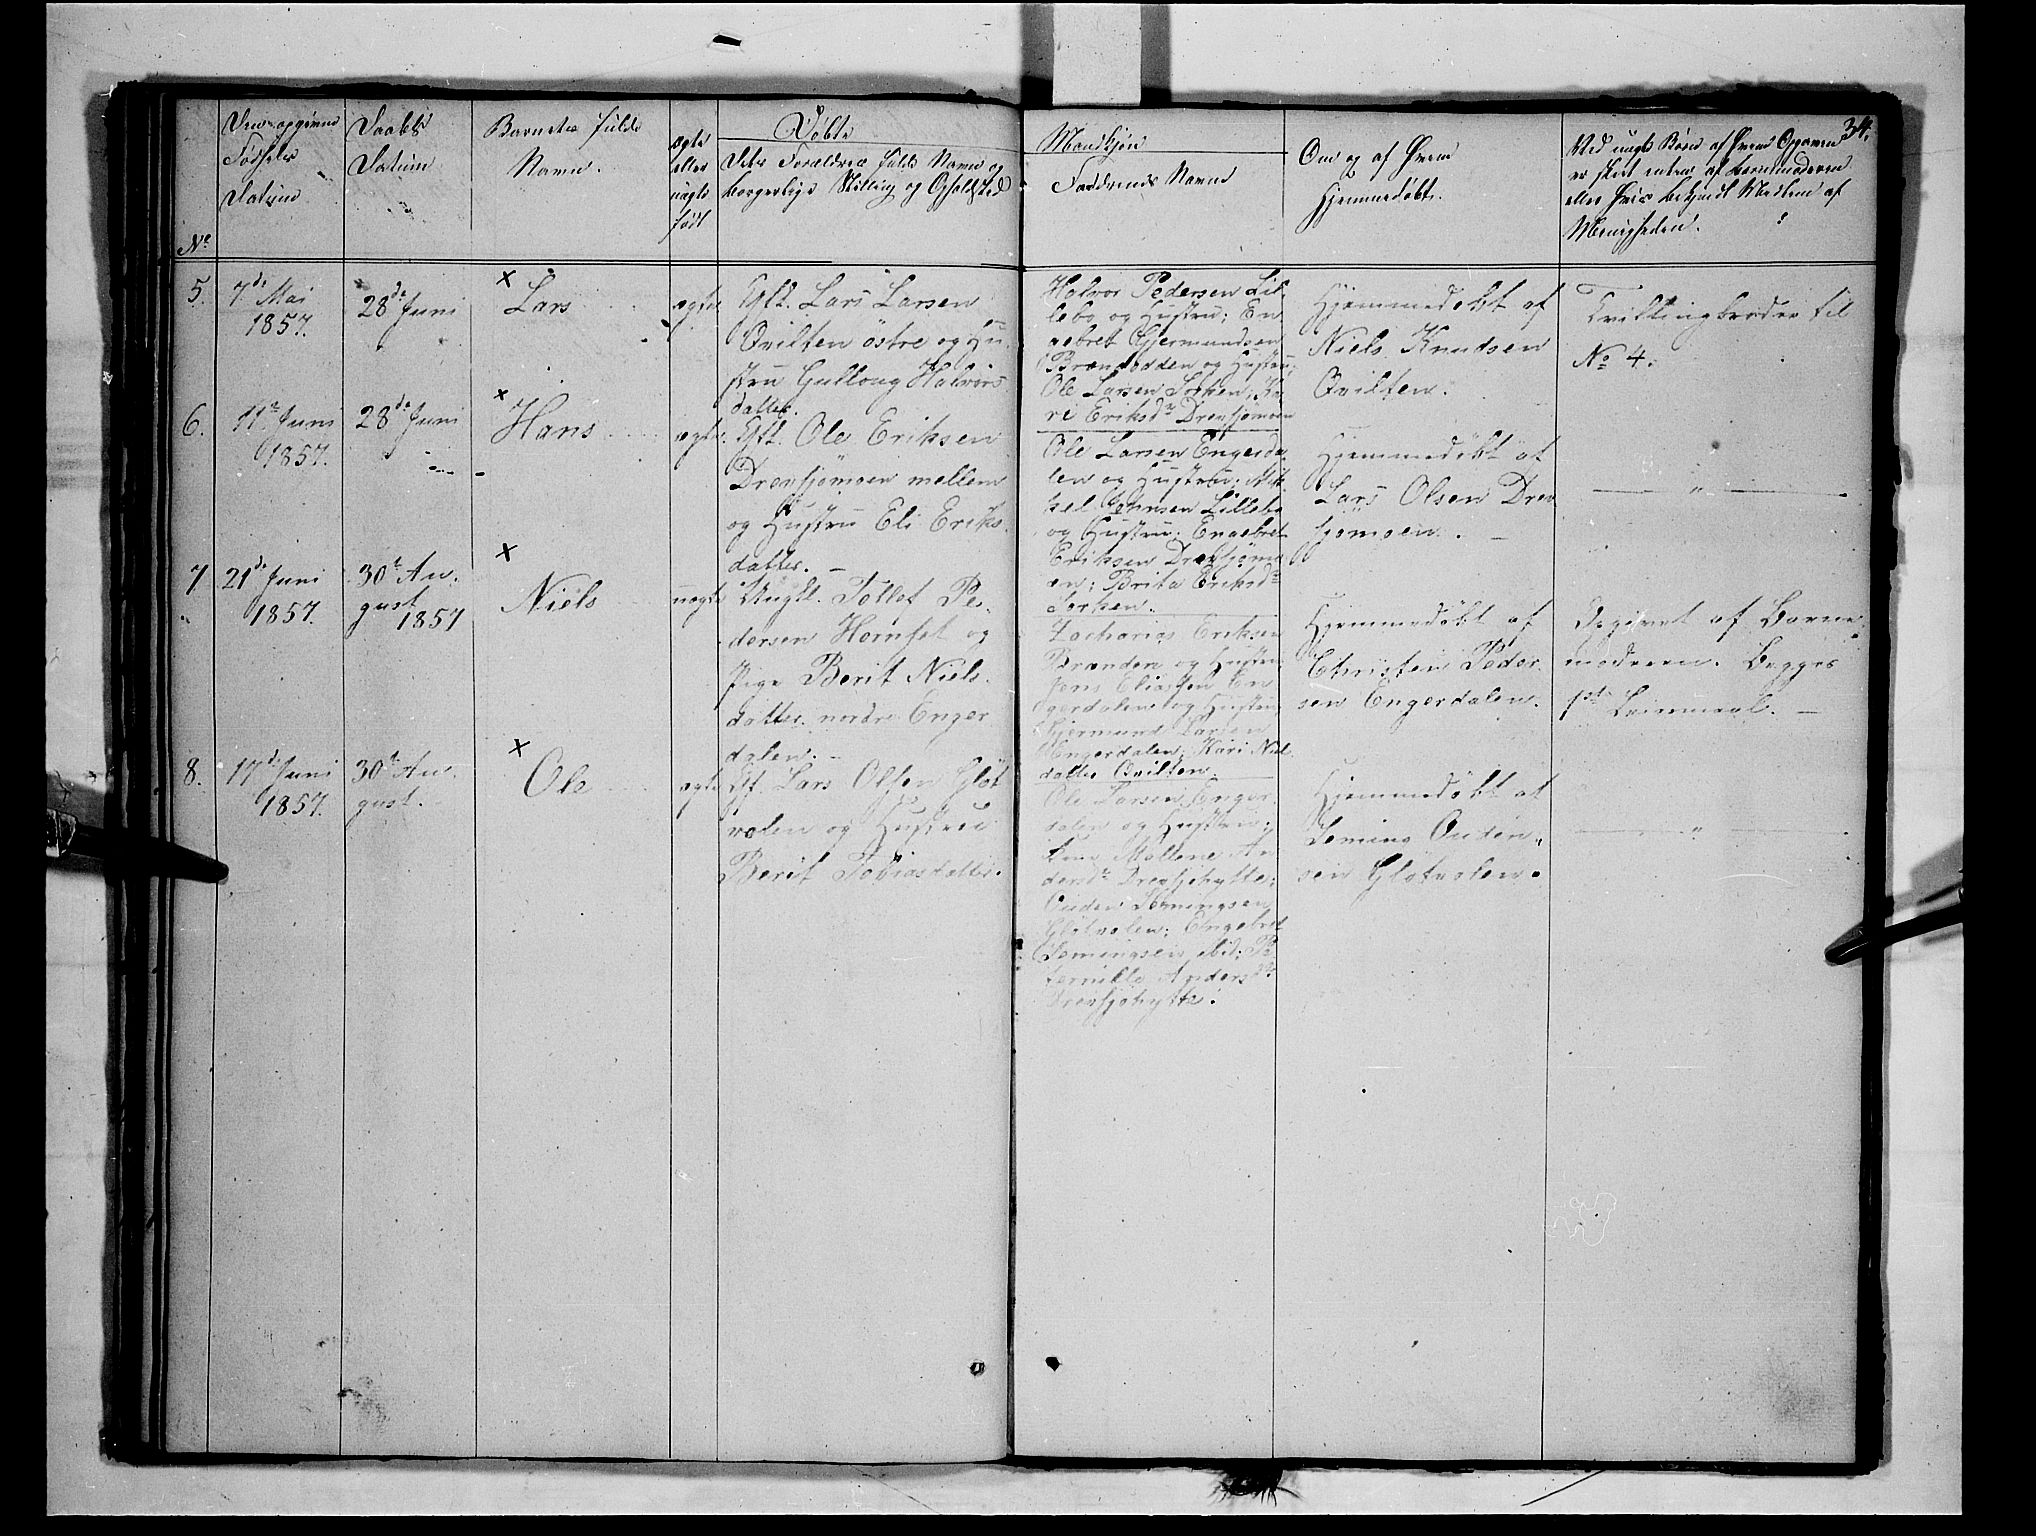 34.
Døbte
Mandkjøn
No
Den opgivne
Fødsels
Datum
Daabs
Datum
Barnets fulde
Navn.
ægte
eller
uægte
født
Dets Forældres fulde Navn og
borgerlige Stilling og Opholdsted
Faddernes Navne
Om og af hvem
hjemmedøbt.
Ved uægte Børn af hvem Opgaven
er skeet enten af Barnemoderen
eller hvis bekjendt Medlem af
Menigheden.
5.
7de Mai
1857.
28de Juni
×
Lars
ægte
Gft. Lars Larsen
Qvilten östre og Hu-
stru Gulloug Halvors-
datter.
Halvor Pedersen Lil-
lebo og Hustru; En-
gebret Gjermundsen
Brændodden og Hustru;
Ole Larsen Sorken; Ka-
ri Eriksdr Drevsjømoen
Hjemmedøbt af
Niels Knudsen
Qvilten.
Tvillingbroder til
No 4.
6.
11te Juni
1857.
28de Juni
×
Hans
ægte
Gft. Ole Eriksen
Drevsjömoen mellem
og Hustru Eli Eriks-
datter. —
Ole Larsen Engerda-
len og Hustru; Mik-
kel Lillebo
og Hustru; Engebret
Eriksen Drevsjømo-
en; Brita Eriksdr
Sorken.
Hjemmedøbt af
Lars Olsen Drev-
sjømoen.
— " —
7
21de Juni
1857.
30te Au-
gust
1857
×
Niels
uægte
Ungk. Tollef Pe-
dersen Hornset og
Pige Berit Niels-
datter nordre Enger-
dalen. —
Zacharias Eriksen
Brænden og Hustru
Jens Eliassen En-
gerdalen og Hustru
Gjermund Larsen
Engerdalen; Kari Niels-
datter Qvilten.
Hjemmedøbt af
Christen Peder-
sen Engerdalen.
Opgivet af Barne-
moderen. Begges
1ste Leiermaal. —
8.
17de Juni
1857.
30te Au-
gust.
×
Ole
ægte
Gf. Lars Olsen Gløt-
volen og Hustrue
Berit Tobiasdatter.
Ole Larsen Enger-
dalen og Hustru;
Mallene An-
dersdr Drevsjøhytte;
Ouden Semingsen
Gløtvolen; Engebret
Semingsen ibid; Pe-
ternille Andersdr
Drevsjøhytte.
Hjemmedøbt af
Seming Ouden-
sen Gløtvolen.
— " —